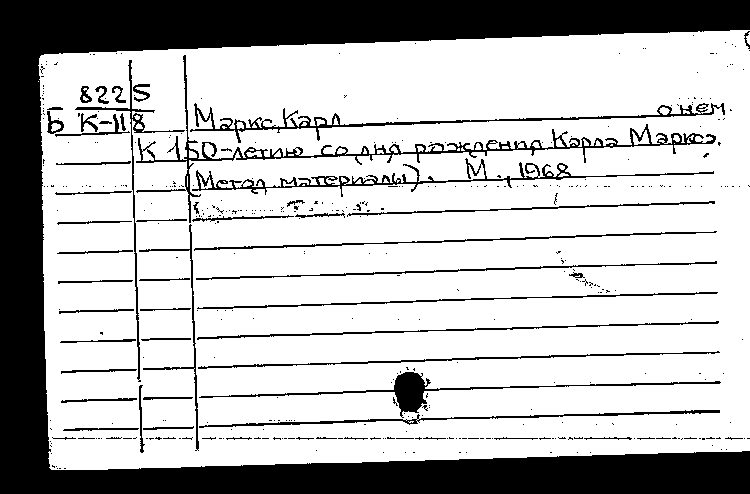 8225
Б К-118
Маркс, Карл о нем.
К 150-летию со дня рождения Карла Маркса.
(Метод. материалы). М., 1968